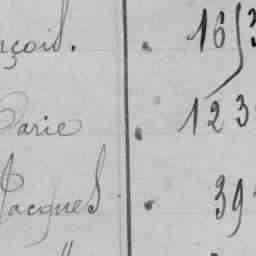 rçois. . 16
Marie . 123
Jacques . 39